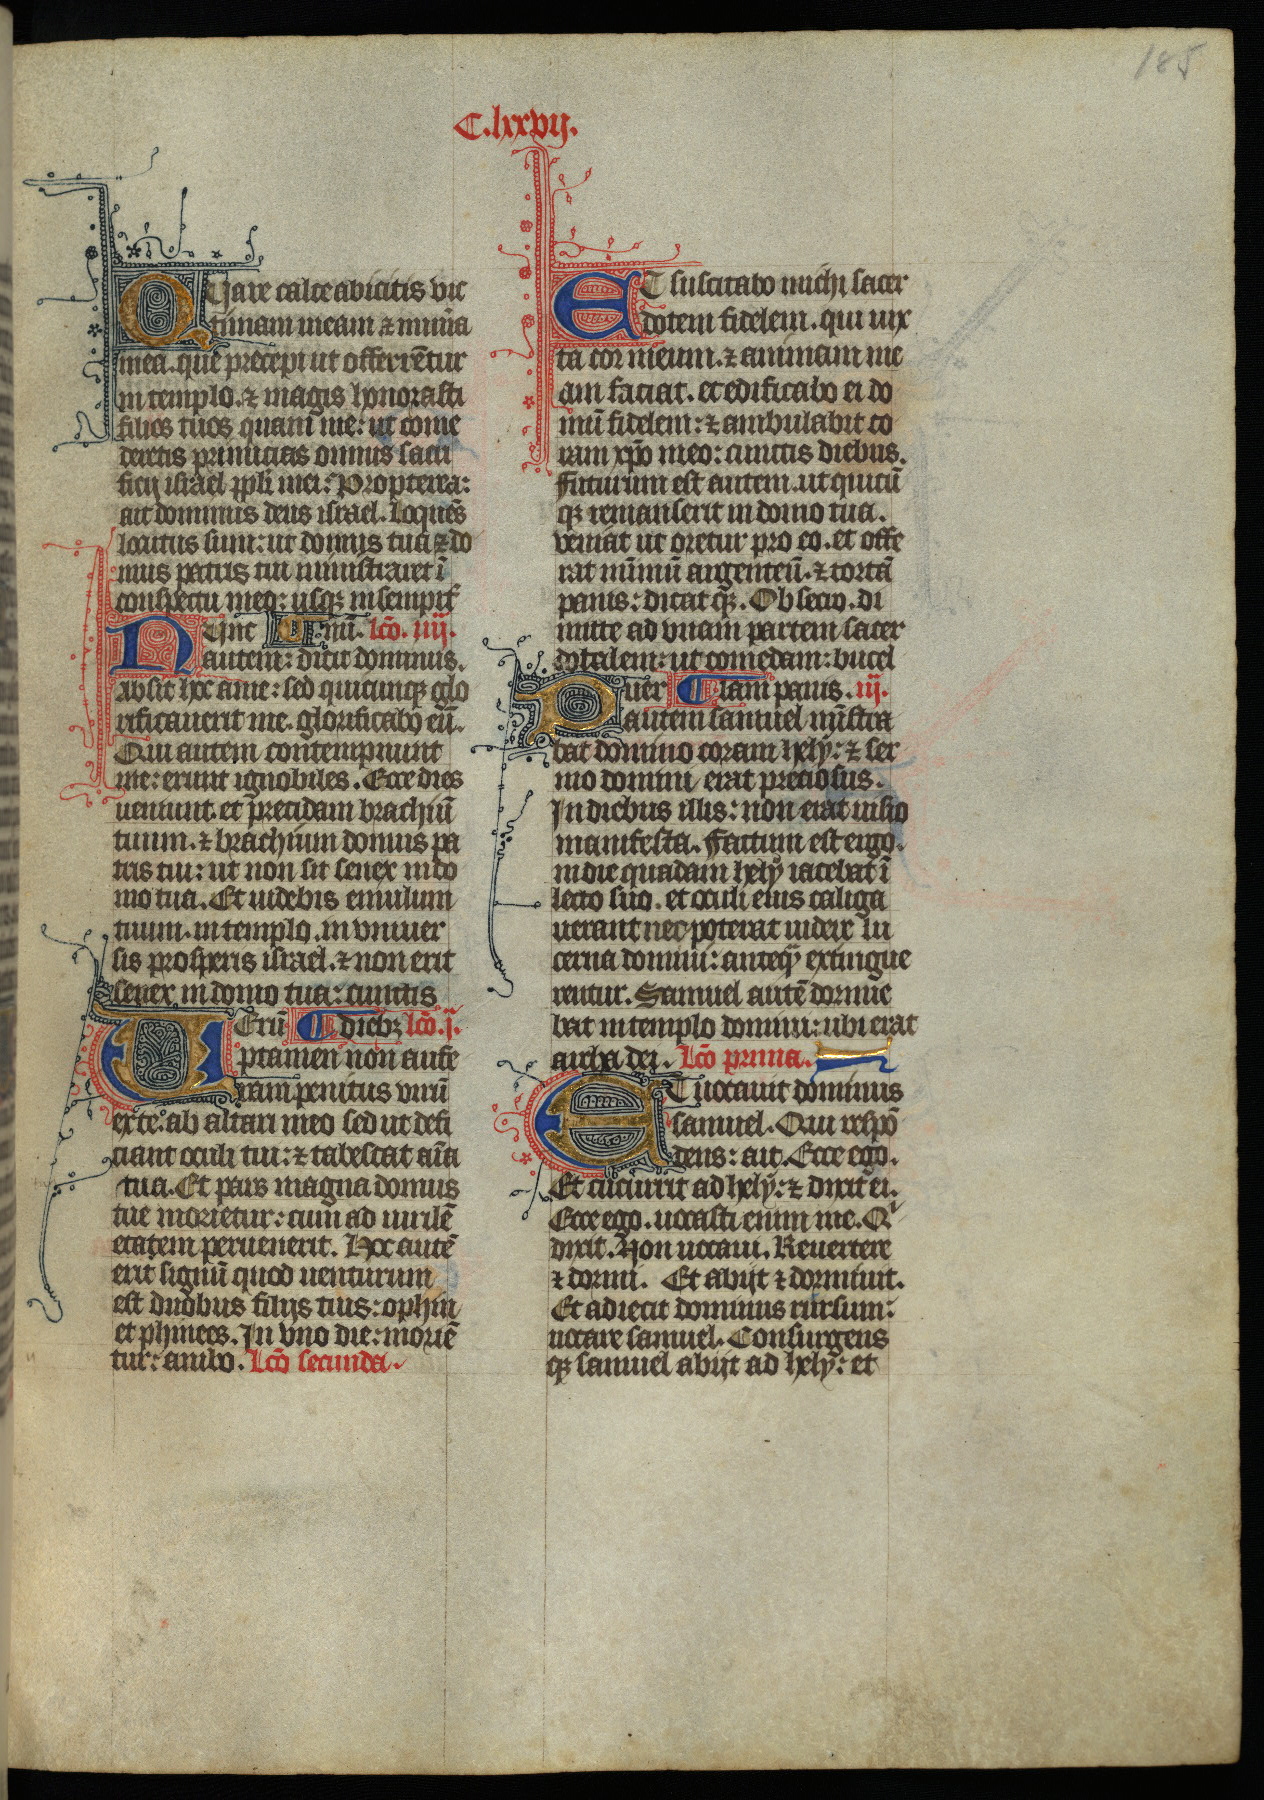 185
C.lxxvij.
QUare calce abicitis vic
timam meam ⁊ mun̄a
mea. que precepi ut offerrētur
in templo. ⁊ magis honorasti
filios tuos quam me: ut come
deretis primicias omnis sacri
ficij israel ppli mei: Propterea:
ait dominus deus israel. Loquēs
locutus sum: ut domus tua ⁊ do
mus patris tui ministraret ī
conspectu meo: usq; in sempit̄
NUnc nū. lcō. iiij.
autem: dicit dominus.
Absit hoc a me: sed quicunq; glo
rificauerit me. glorificabo eū.
Qui autem contempnunt
me: erunt ignobiles. Ecce dies
ueniunt. et precidam brachiū
tuum. ⁊ brachium domus pa
tris tui: ut non sit senex in do
mo tua. Et uidebis emulum
tuum. in templo. in vniuer
sis prosperis israel. ⁊ non erit
senex in domo tua: cunctis
UErū dieb; lcō. j.
ptamen non aufe
ram penitus virū
ex te: ab altari meo sed ut defi
ciant oculi tui: ⁊ tabescat aīa
tua. Et pars magna domus
tue morietur: cum ad uirilē
etatem peruenerit. Hoc autē
erit signū quod uenturum
est duobus filijs tuis: ophni
et phinees. In vno die: moriē
tur: ambo. Lcō secunda.
ET suscitabo michi sacer
dotem fidelem. qui iux
ta cor meum. ⁊ animam me
am faciat. et edificabo ei do
mū fidelem: ⁊ ambulabit co
ram xp̄o meo: cunctis diebus.
Futurum est autem. ut quicū
q; remanserit in domo tua.
veniat ut oretur pro eo. et offe
rat nūmū argenteū. ⁊ tortā
panis: dicat q;. Obsecro. di
mitte ad vnam partem sacer
dotalem: ut comedam: bucel
PUer lam panis. iij.
autem samuel mīstra
bat domino coram hely: ⁊ ser
mo domini erat preciosus.
In diebus illis: non erat uisio
manifesta. Factum est ergo.
in die quadam hely iacebat ī
lecto suo. et oculi eius caliga
uerant nec poterat uidere lu
cerna domini: anteq̄ extingue
rentur. Samuel autē dormie
bat in templo domini: ubi erat
archa dei. Lcō prima.
ET uocauit dominus
samuel. Qui respō
dens: ait. Ecce ego.
Et cucurrit ad hely: ⁊ dixit ei.
Ecce ego. uocasti enim me. Qⁱ
dixit. Non uocaui. Reuertere
⁊ dormi. Et abijt ⁊ dormiuit.
Et adiecit dominus rursum:
uocare samuel. Consurgens
q; samuel abijt ad hely: et